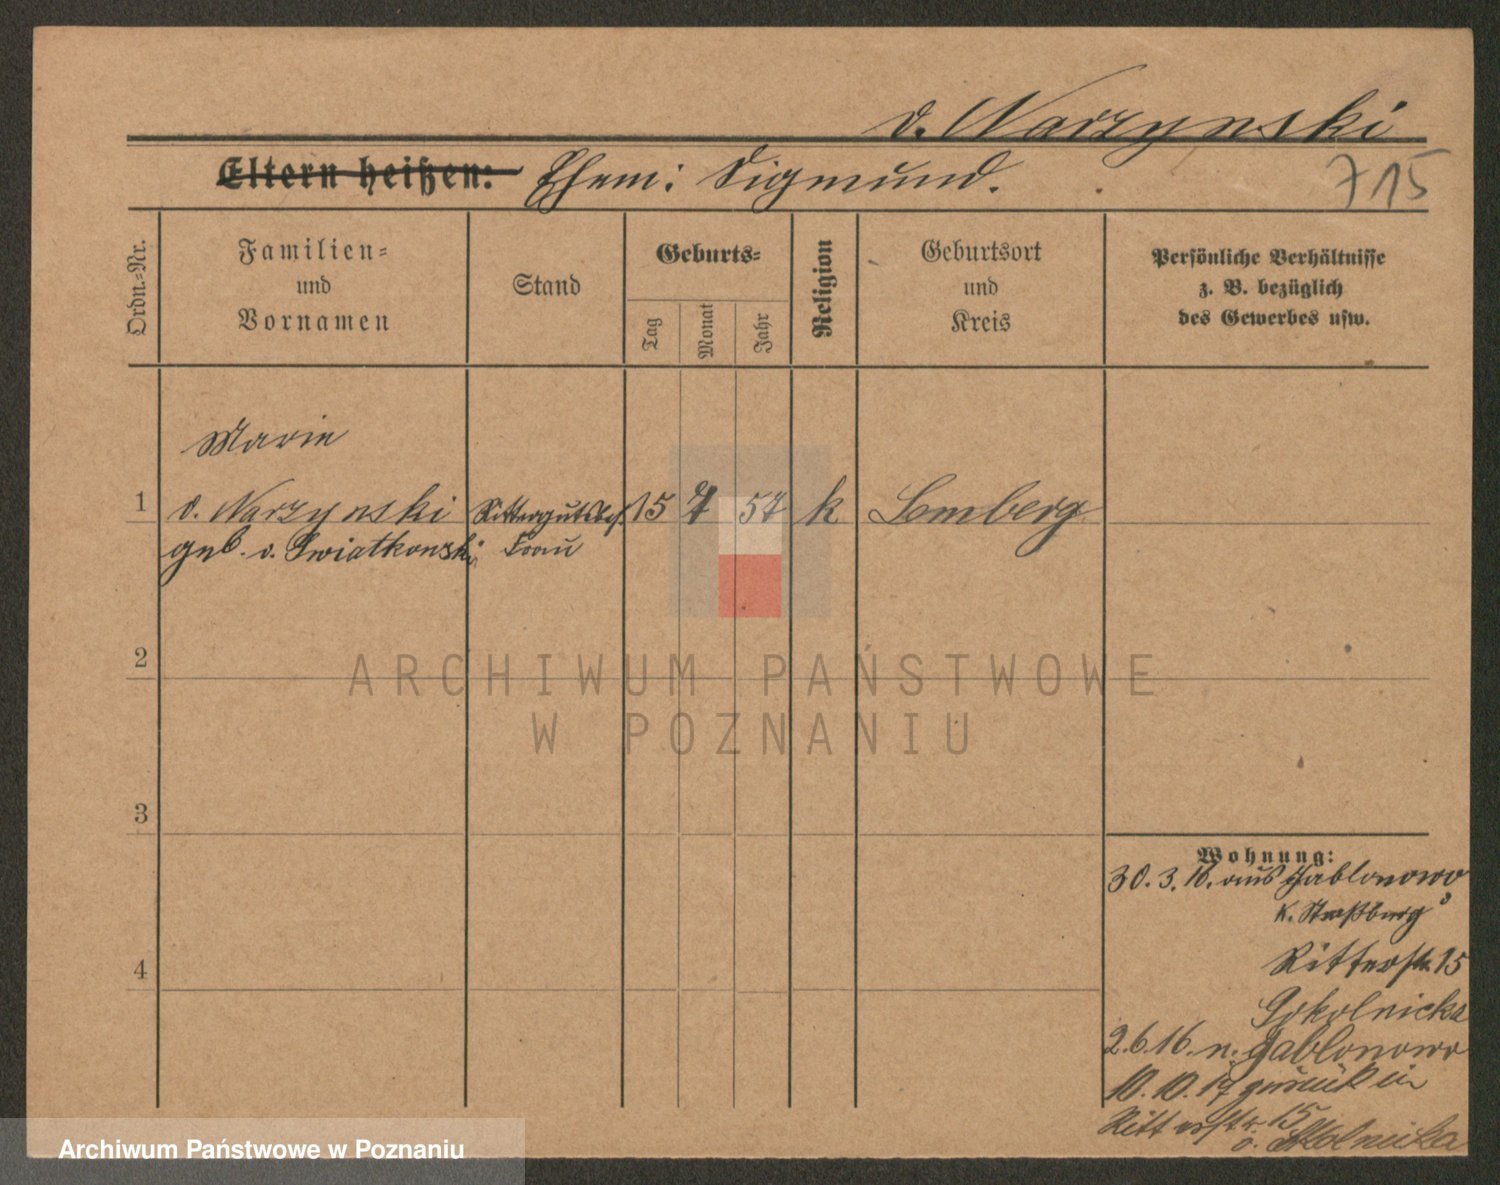 v. Narzynski
Eltern heißen: Ehem: Sigmund.
715
Ordn.-Nr.
Familien-
und
Vornamen
Stand
Geburts-
Tag
Monat
Jahr
Religion
Geburtsort
und
Kreis
Persönliche Verhältnisse
z. B. bezüglich
des Gewerbes usw.
Marie
1 v. Narzynski Rittergutsbes. 15 7 57 k Lemberg
geb. v. Swiatkowski Frau
2
3
4
Wohnung:
30. 3. 16. aus Jablonowo
K. Straßburg
Ritterstr. 15
Sokolnicka
2. 6. 16. n. Jablonowo
10. 10. 17 zurück in
Ritterstr. 15
v. Skolnicka
ARCHIWUM PAŃSTWOWE
W POZNANIU
Archiwum Państwowe w Poznaniu